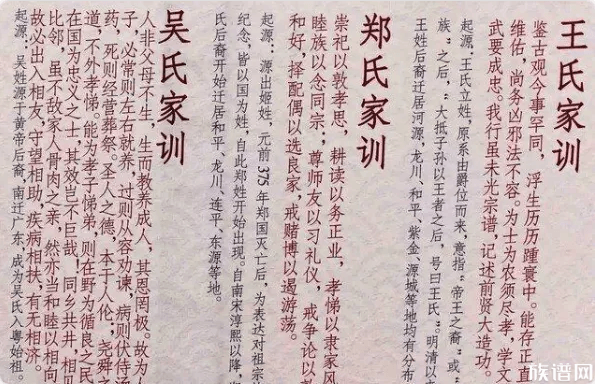 王氏家训
鉴古观今事罕同，浮生历历踵寰中。能存正直
维佑，尚务凶邪法不容。为士为农须尽孝，学文
武要成忠。我行虽未光宗谱，记述前贤大造功。
起源：王氏立姓，原系由爵位而来，意指“帝王之裔”或
族”之后，“大抵子孙以王者之后，号曰王氏”。明清以
王姓后裔迁居河源，龙川、和平、紫金、源城等地均有分布
郑氏家训
崇祀以敦孝思，耕读以务正业，孝悌以隶家风
睦族以念同宗；尊师友以习礼仪，戒争论以
和好，择配偶以选良家，戒赌博以遏游荡。
起源：源出姬姓，元前375年郑国灭亡后，为表达对祖宗
纪念，皆以国为姓，自此郑姓开始出现。自南宋淳熙以降，
氏后裔开始迁居和平、龙川、连平、东源等地。
吴氏家训
人非父母不生，生而教养成人，其恩罔极。故为人
子，必常则左右就养，过则从容劝谏，病则伏侍汤
药，死则经营葬祭。圣人之德，本于人伦，尧舜之
道，不外孝悌。能为孝子悌弟，则在野为循良之民
在国为忠义之士，其效岂不巨哉！同乡共井，相见
比邻，虽不敌家人骨肉之亲，然亦当和睦以相向
故必出入相友，守望相助，疾病相扶，有无相济。
起源：吴姓源于黄帝后裔，南迁广东，成为吴氏入粤始祖。
族谱网